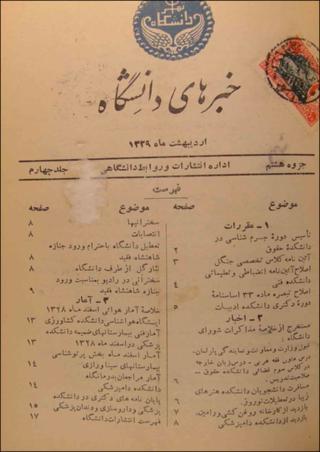 دانشگاه
خبرهای دانشگاه
اردیبهشت ماه ۱۳۲۹
جزوه هشتم
اداره انتشارات و روابط دانشگاهی
جلد چهارم
فهرست
موضوع صفحه
۱ - مقررات
تأسیس دورهٔ جرم شناسی در
دانشکده حقوق ۲
آئین نامه کلاس تخصصی جنگل ۳
اصلاح آئین نامه انضباطی و تعلیماتی
دانشکده فنی ۴
اصلاح تبصره ماده ۳۳ اساسنامهٔ
دورهٔ دکتری دانشکده ادبیات ۵
۲ - اخبار
مستخرج از خلاصهٔ مذاکرات شورای
دانشگاه :
مسافرت دانشجویان دانشکده هنرهای
زیبا در تعطیلات نوروز
بازدید از کارخانه روغن کشی ورامین
بازدید از دانشکده دامپزشکی ۸
موضوع صفحه
سخنرانیها ۸
انتصابات ۸
تعطیل دانشگاه باحترام ورود جنازه
شاهنشاه فقید ۸
نثار گل از طرف دانشگاه ۸
سخنرانی در رادیو بمناسبت ورود
جنازه شاهنشاه فقید ۹
۳ - آمار
خلاصهٔ آمار هوائی اسفند ماه ۱۳۲۸
ایستگاه هواشناسی دانشکده کشاورزی ۱۳
آمار فنی بیمارستانهای ضمیمه دانشکده
پزشکی در اسفند ماه ۱۳۲۸ ۱۳
آمار اسفند ماه بخش پرتوشناسی
بیمارستان سینا ورازی ۱۴
آمار مراجعین بدرمانگاه
دانشکده دامپزشکی ۱۴
پایان نامه های دکتری در دانشکده
پزشکی و داروسازی و دندان پزشکی ۱۵
فهرست انتشارات دانشگاه ۱۷